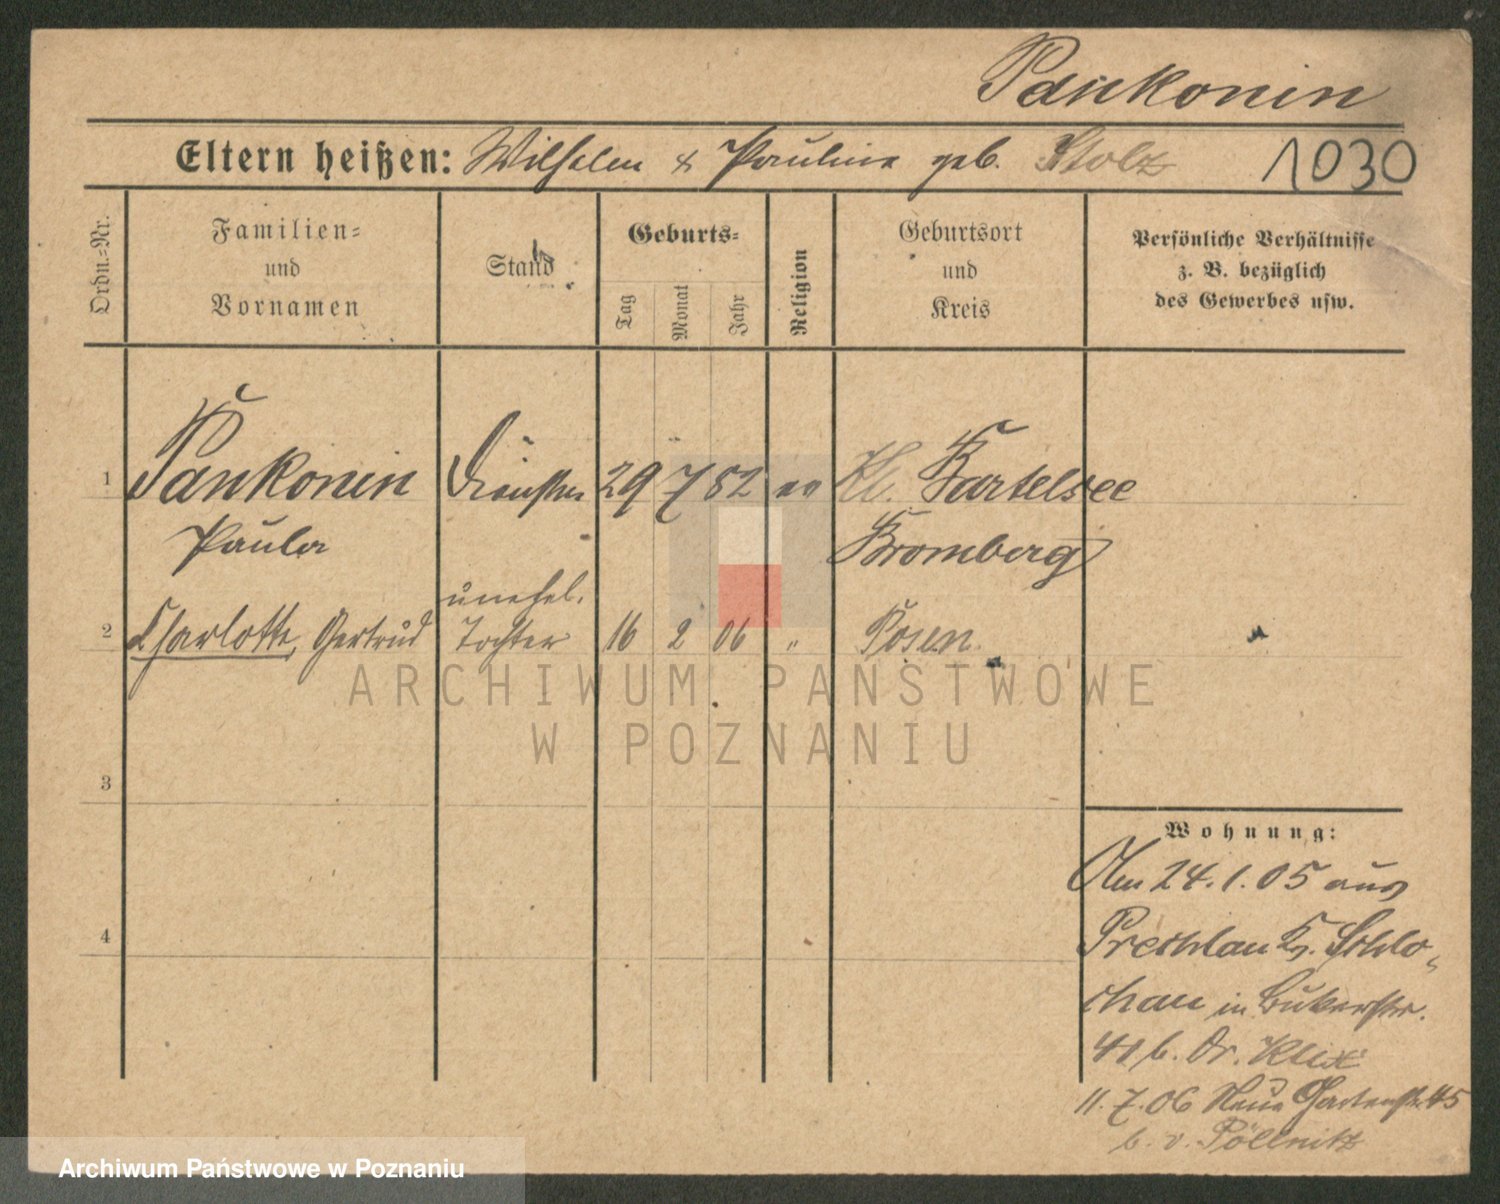 Pankonin
Eltern heißen: Wilhelm & Pauline geb. Stolz
1030
Ordn.-Nr.
Familien-
und
Vornamen
Stand
Geburts-
Tag
Monat
Jahr
Religion
Geburtsort
und
Kreis
Persönliche Verhältnisse
z. B. bezüglich
des Gewerbes usw.
1 Pankonin 29 7 82 ev Kl. Bartelsee
Paula Bromberg
unehel.
2 Charlotte, Gertrud Tochter 16 2 06 " Posen
3
4
Wohnung:
Am 24.1.05 aus
Prechlau Kr. Schlo-
chau in Bukerstr.
41 b. Dr. Klix
11.7.06 Neue Gartenstr. 45
b. v. Pöllnitz
ARCHIWUM PAŃSTWOWE
W POZNANIU
Archiwum Państwowe w Poznaniu